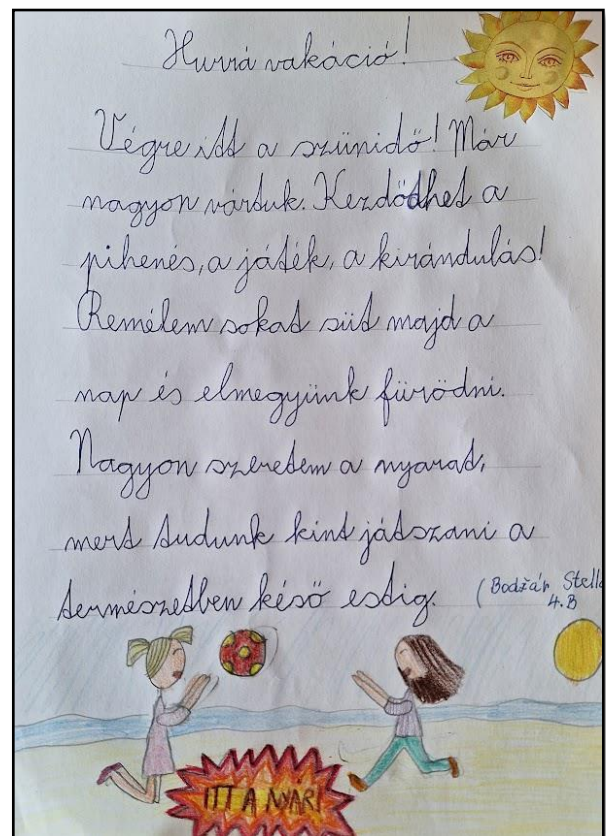 Hurrá vakáció!
Végre itt a szünidő! Már
nagyon vártuk. Kezdődhet a
pihenés, a játék, a kirándulás!
Remélem sokat süt majd a
nap és elmegyünk fürödni.
Nagyon szeretem a nyarat,
mert tudunk kint játszani a
természetben késő estig.
(Bodžár Stella
4.B
ITT A NYÁR!